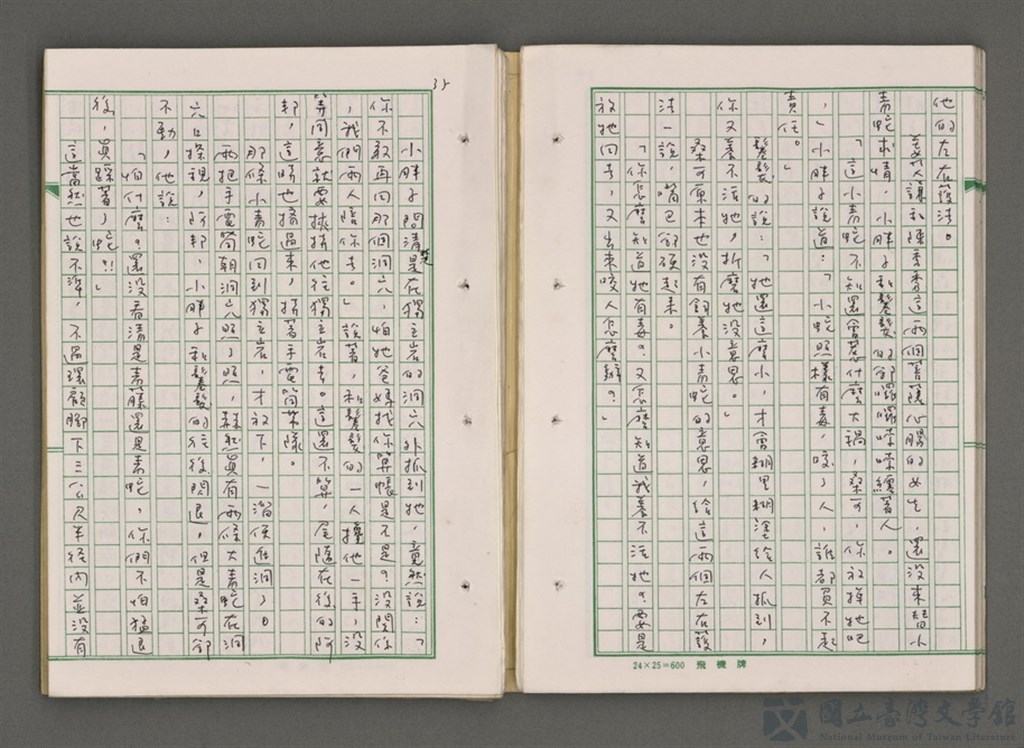 他的左右護法。
姜苡譁和陳秀秀這兩個菩薩心腸的女生,還沒來替小
青蛇求情,小胖子和鬈髮的卻嘿嘿咪咪纏著人。
「這小青蛇不知還會惹什麼大禍,桑可,你放掉牠吧
,」小胖子說道:「小蛇照樣有毒,咬了人,誰都負不起
責任。」
鬈髮的說:「牠還這麼小,才會糊里糊塗給人抓到,
你又養不活牠,折磨牠沒意思。」
桑可原本也沒有飼養小青蛇的意思,給這兩個左右護
法一說,嘴巴卻硬起來。
「你怎麼知道牠有毒?又怎麼知道我養不活牠?要是
放牠回去,又出來咬人怎麼辦?」
24×25=600 飛機牌
35
小胖子問清楚是在獨立岩的洞穴外抓到牠,竟然說:「
你不敢再回那個洞穴,怕牠爸媽找你算帳是不是?沒關係
,我們兩人陪你去。」說著,和鬈髮的一人攙他一手,沒
等同意就要挾持他往獨立岩去。這還不算,尾隨在後的阿
邦,這時也擠過來,持著手電筒帶隊。
那條小青蛇回到獨立岩,才放下,一溜便進洞了。
兩把手電筒朝洞穴照了照,赫然真有兩條大青蛇在洞
穴口探視,阿邦、小胖子和鬈髮的往後閃退,但是桑可卻
不動,他說:
「怕什麼?還沒看清是青藤還是青蛇,你們不怕猛退
後,真踩著了蛇!!」
這當然也說不準,不過環顧腳下三公尺半徑內並沒有
國立臺灣文學館
National Museum of Taiwan Literature